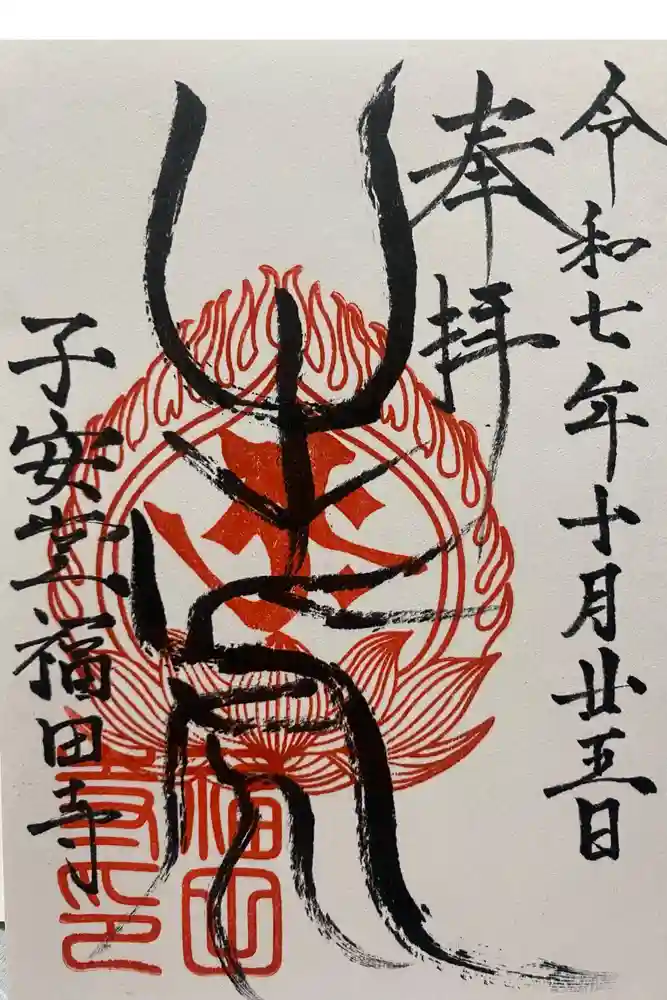 令和七年十月廿五日
奉拝
子安堂福田寺
福田
寺印